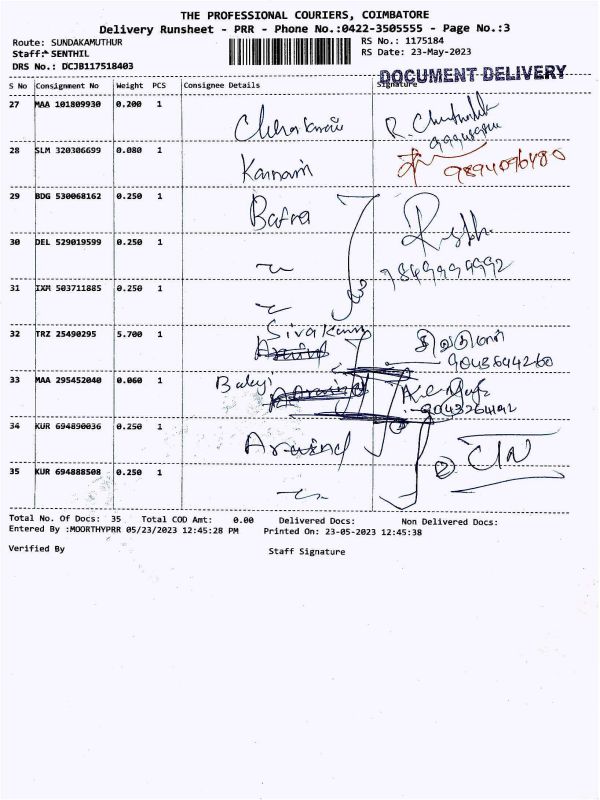 THE PROFESSIONAL COURIERS, COIMBATORE
Delivery Runsheet - PRR - Phone No.:0422-3505555 - Page No.:3
Route: SUNDAKAMUTHUR
RS No.: 1175184
Staff: SENTHIL
RS Date: 23-May-2023
DRS No.: DCJB117518403
DOCUMENT DELIVERY
S No Consignment No Weight PCS Consignee Details Signature
27 MAA 101809930 0.200 1
28 SLM 320306699 0.080 1
Kannan
29 BDG 530068162 0.250 1
Bafna
30 DEL 529019599 0.250 1
31 IXM 503711885 0.250 1
32 TRZ 25490295 5.700 1
33 MAA 295452040 0.060 1
Balaji
34 KUR 694890036 0.250 1
Aravind
35 KUR 694888508 0.250 1
Total No. Of Docs: 35 Total COD Amt: 0.00 Delivered Docs: Non Delivered Docs:
Entered By :MOORTHYPRR 05/23/2023 12:45:28 PM Printed On: 23-05-2023 12:45:38
Verified By Staff Signature